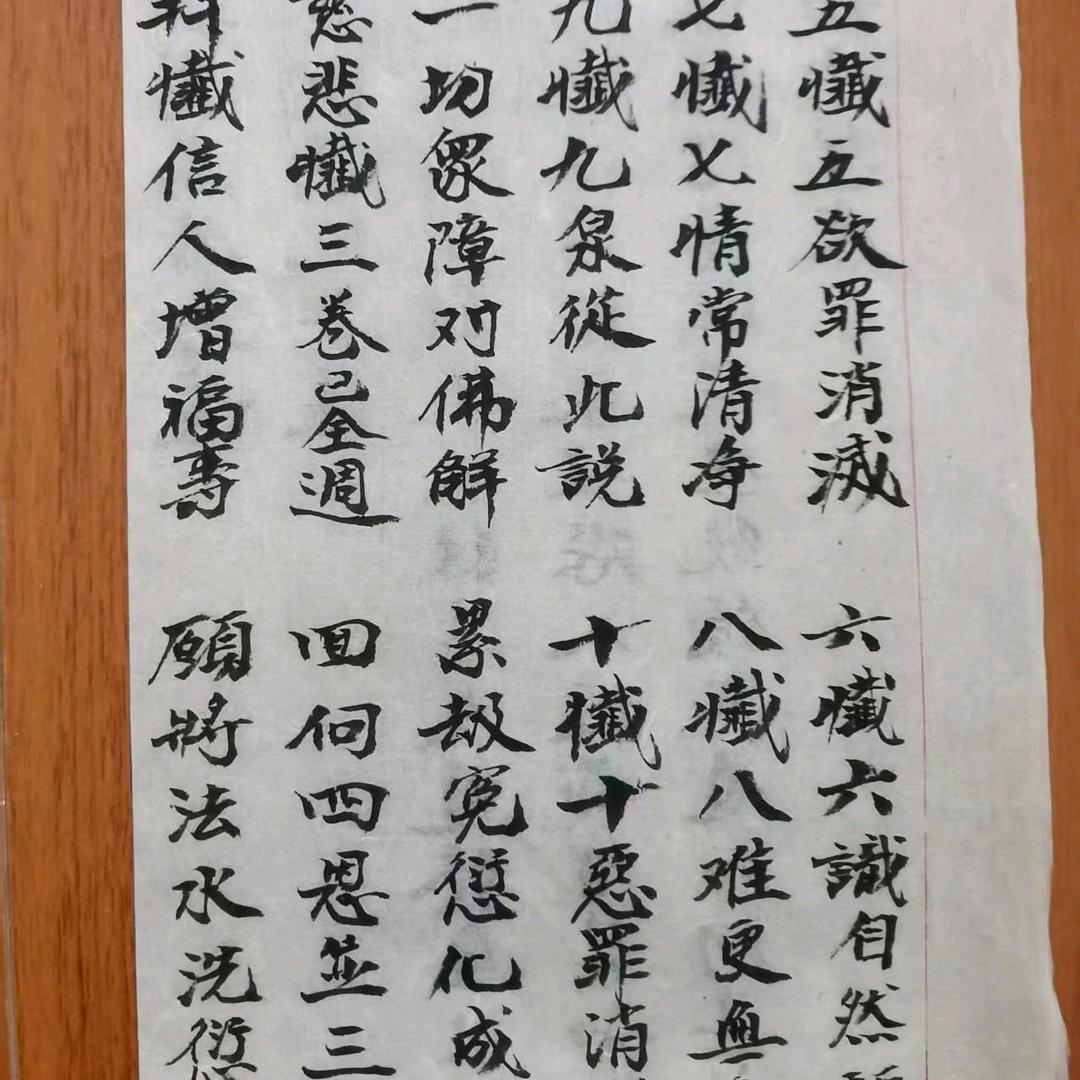 五懺五欲罪消滅 六懺六識自然
七懺七情常清净 八懺八难更無
九懺九泉從此說 十懺十惡罪消
一切眾障对佛解 累劫冤愆化成
慈悲懺三卷已全週 回向四恩並三
科懺信人增福壽 願將法水洗愆